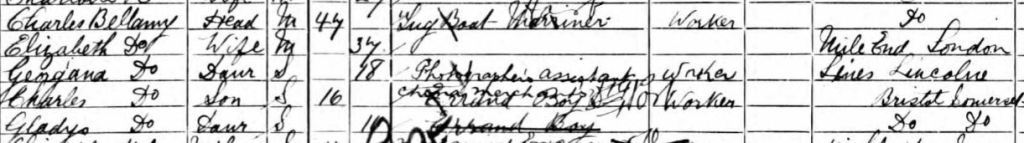 Charles Bellamy Head M 44 Tug Boat Marriner Worker Do
Elizabeth Do Wife M 37 Mile End London
Georgana Do Daur S 18 Photographers assistant Worker Lines Lincolne
Charles Do Son S 16 Errand Boy Worker Bristol Somerset
Gladys Do Daur S Errand Boy Do Do